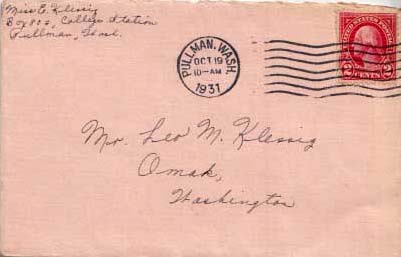 Miss E. Klessig
Box 802, College Station
Pullman, Wash.
PULLMAN, WASH.
OCT 19
10-AM
1931
UNITED STATES POSTAGE
2 CENTS 2
Mr. Leo M. Klessig
Omak,
Washington